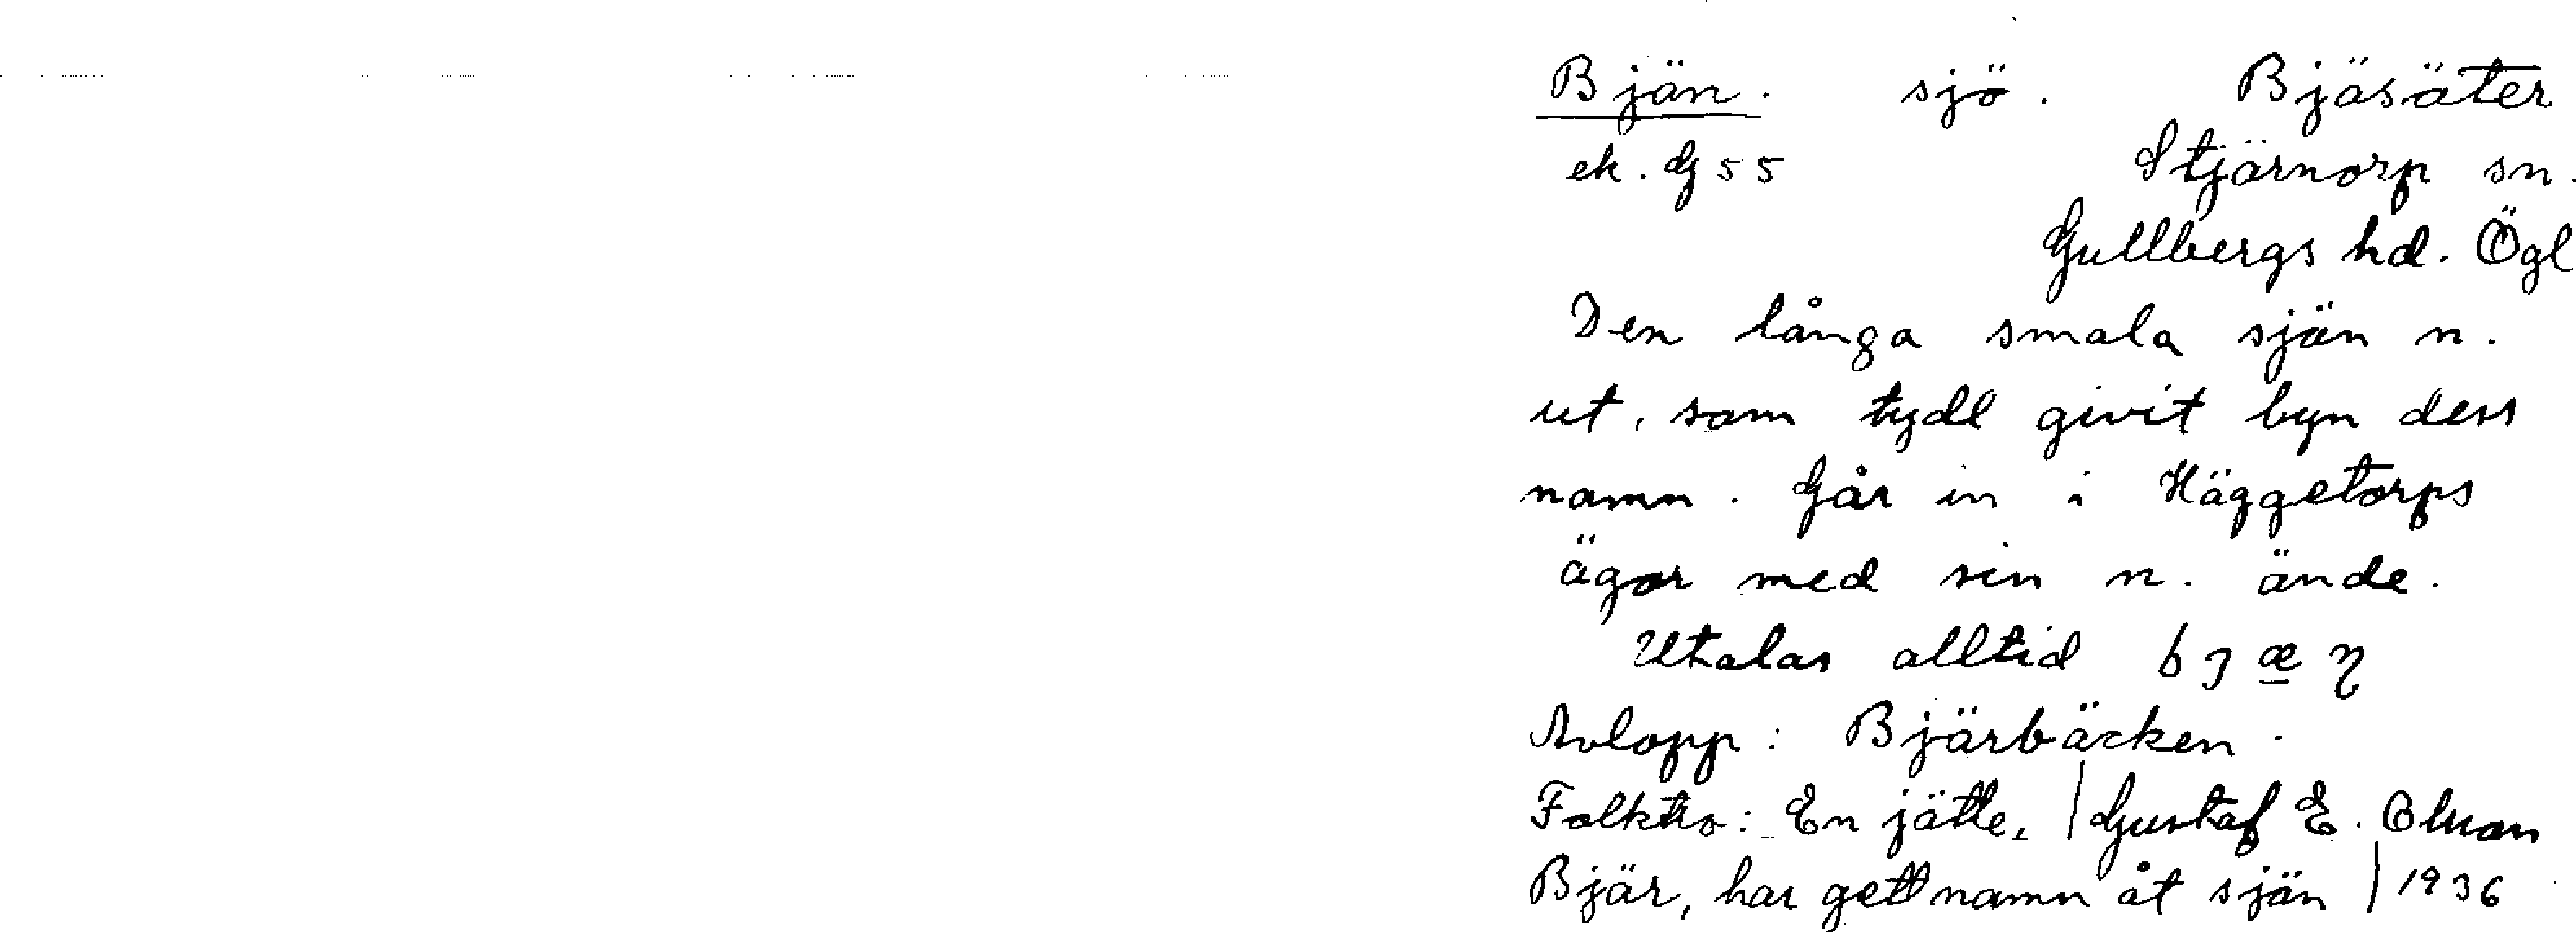 Bjän. sjö. Bjäsäter
ek. G 55 Stjärnorp sn.
Gullbergs hd. Ögl
Den långa smala sjön n.
ut, som tydl givit byn dess
namn. Går in i Häggetorps
ägor med sin n. ände.
Uttalas alltid bjæn
Avlopp: Bjärbäcken.
Folktro: En jätte, | Gustaf E. Olsson
Bjär, har gett namn åt sjön | 1936